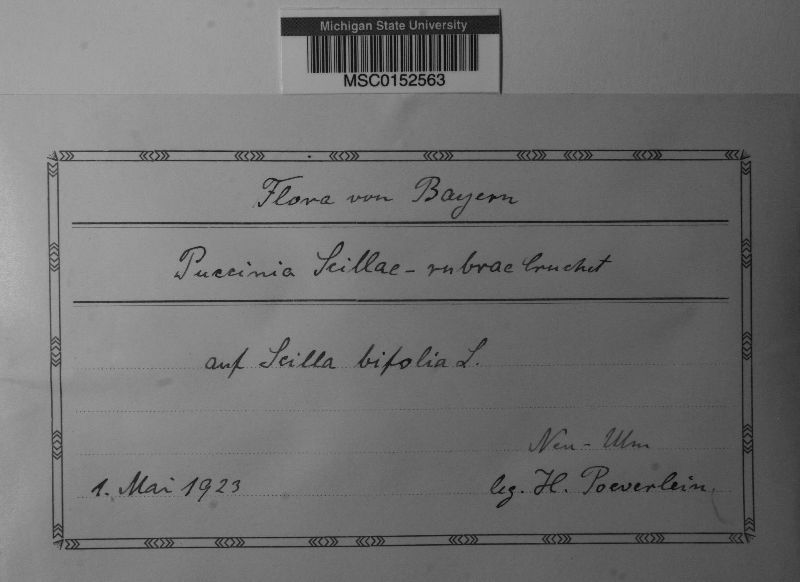 Michigan State University
MSC0152563
Flora von Bayern
Puccinia Scillae-rubrae Cruchet
auf Scilla bifolia L.
Neu-Ulm
1. Mai 1923 leg. H. Poeverlein.